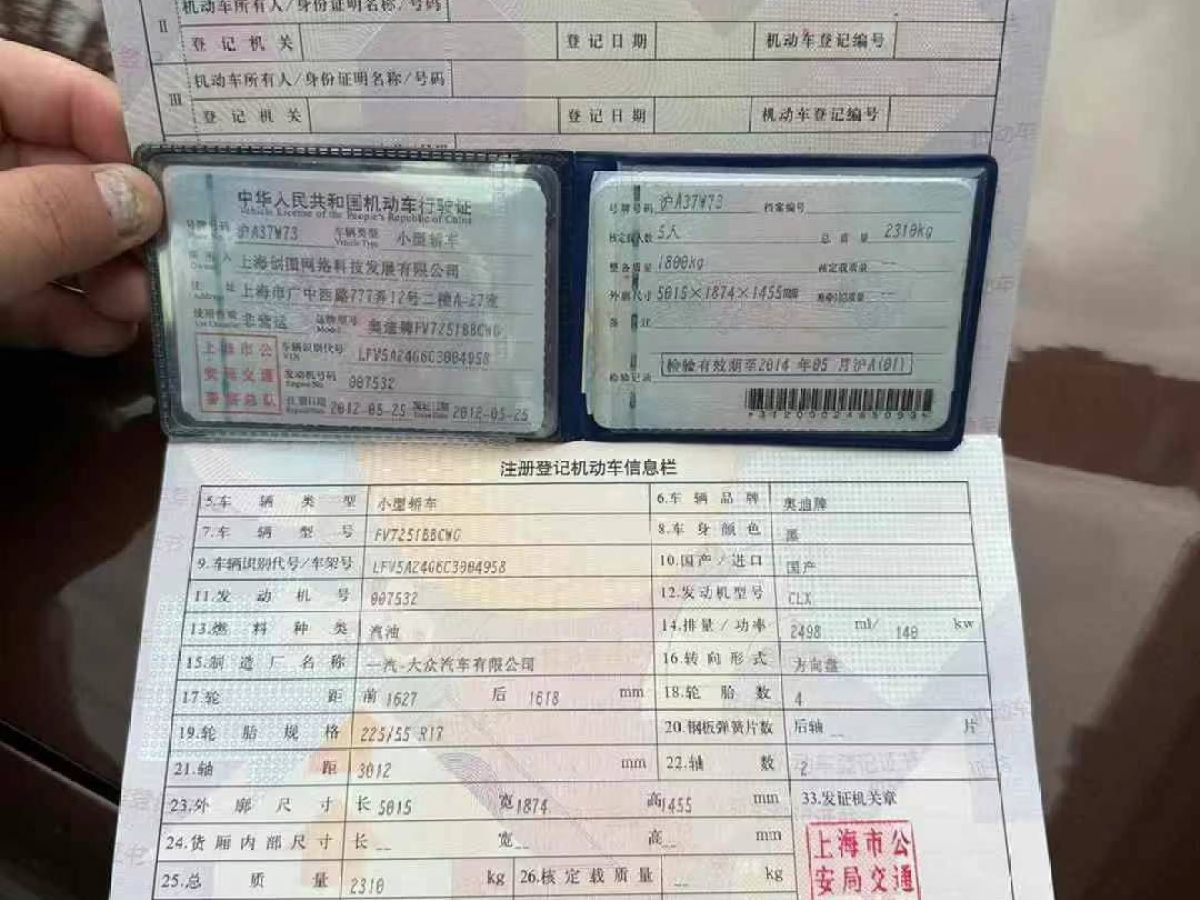 机动车所有人/身份证明名称/号码
II
登记机关 登记日期 机动车登记编号
机动车所有人/身份证明名称/号码
III
登记机关 登记日期 机动车登记编号
中华人民共和国机动车行驶证
Vehicle License of the People's Republic of China
号牌号码 沪A37W73 车辆类型 小型轿车
Vehicle Type
上海创图网络科技发展有限公司
Owner
住址 上海市广中西路777弄12号二幢A-27室
Address
使用性质 非营运 品牌型号 奥迪牌FV7251BBCWG
Use Character Model
上海市公
安局交通
警察总队
车辆识别代号 LFV5A24G6C3004958
VIN
发动机号码 007532
Engine No.
注册日期 2012-05-25 发证日期 2012-05-25
号牌号码 沪A37W73 档案编号
核定载人数 5人 总质量 2310kg
整备质量 1800kg 核定载质量 --
外廓尺寸 5015×1874×1455mm 准牵引总质量 --
备注
检验记录 检验有效期至2014年05月沪A(01)
注册登记机动车信息栏
5.车辆类型 小型轿车 6.车辆品牌 奥迪牌
7.车辆型号 FV7251BBCWG 8.车身颜色 黑
9.车辆识别代号/车架号 LFV5A24G6C3004958 10.国产/进口 国产
11.发动机号 007532 12.发动机型号 CLX
13.燃料种类 汽油 14.排量/功率 2498 ml/ 140 kw
15.制造厂名称 一汽-大众汽车有限公司 16.转向形式 方向盘
17.轮距 前 1627 后 1618 mm 18.轮胎数 4
19.轮胎规格 225/55 R17 20.钢板弹簧片数 后轴 -- 片
21.轴距 3012 mm 22.轴数 2
23.外廓尺寸 长 5015 宽 1874 高 1455 mm 33.发证机关章
24.货厢内部尺寸 长 -- 宽 -- 高 -- mm
25.总质量 2310 kg 26.核定载质量 -- kg
上海市公
安局交通